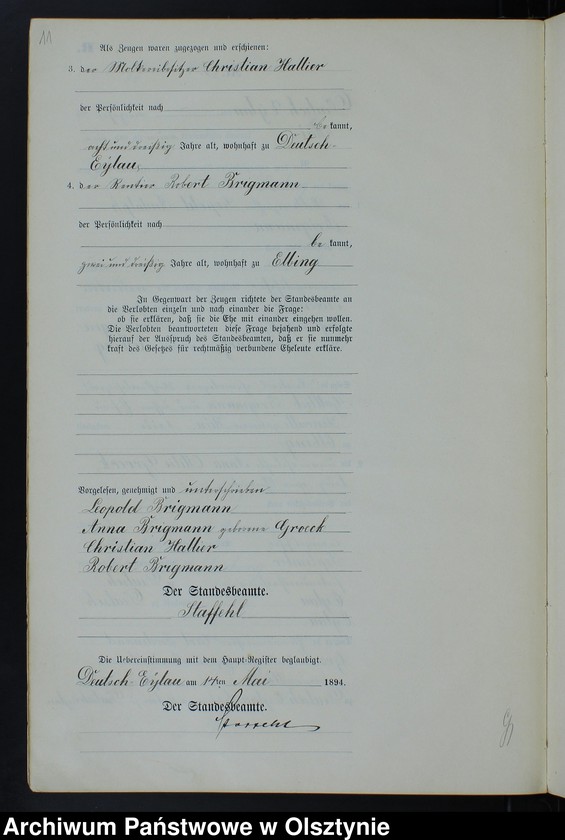 11
Als Zeugen waren zugezogen und erschienen:
3. der Molkereibesitzer Christian Hallier
der Persönlichkeit nach
be kannt,
acht und dreißig Jahre alt, wohnhaft zu Deutsch-
Eylau,
4. der Rentier Robert Brigmann
der Persönlichkeit nach
be kannt,
zwei und dreißig Jahre alt, wohnhaft zu Elbing
In Gegenwart der Zeugen richtete der Standesbeamte an
die Verlobten einzeln und nach einander die Frage:
ob sie erklären, daß sie die Ehe mit einander eingehen wollen.
Die Verlobten beantworteten diese Frage bejahend und erfolgte
hierauf der Ausspruch des Standesbeamten, daß er sie nunmehr
kraft des Gesetzes für rechtmäßig verbundene Eheleute erkläre.
Vorgelesen, genehmigt und unterschrieben
Leopold Brigmann
Anna Brigmann geborene Groeck
Christian Hallier
Robert Brigmann
Der Standesbeamte.
Staffehl
Die Uebereinstimmung mit dem Haupt-Register beglaubigt.
Deutsch-Eylau am 14ten Mai 1894.
Der Standesbeamte.
Staffehl
Archiwum Państwowe w Olsztynie